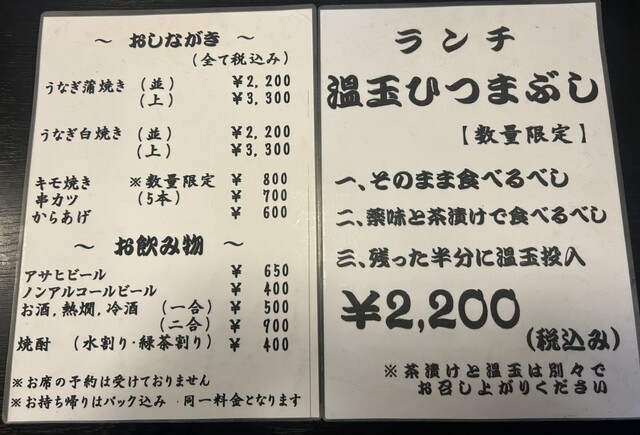 ～ おしながき ～
(全て税込み)
うなぎ蒲焼き (並) ¥2,200
(上) ¥3,300
うなぎ白焼き (並) ¥2,200
(上) ¥3,300
キモ焼き ※数量限定 ¥ 800
串カツ (5本) ¥ 700
からあげ ¥ 600
～ お飲み物 ～
アサヒビール ¥ 650
ノンアルコールビール ¥ 400
お酒,熱燗,冷酒 (一合) ¥ 500
(二合) ¥ 900
焼酎 (水割り・緑茶割り) ¥ 400
※お席の予約は受けておりません
※お持ち帰りはパック込み 同一料金となります
ランチ
温玉ひつまぶし
【数量限定】
一、そのまま食べるべし
二、薬味と茶漬けで食べるべし
三、残った半分に温玉投入
¥2,200
(税込み)
※茶漬けと温玉は別々で
お召し上がりください